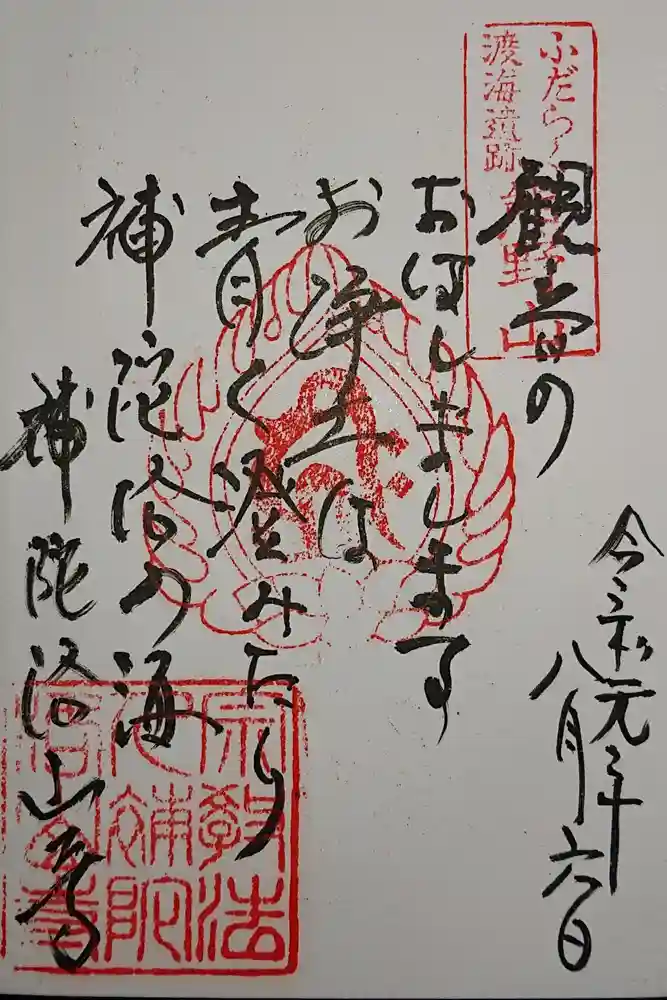 令和元年
八月六日
ふだらく
渡海遺跡
熊野山
観音の
おはしまします
お浄土は
青く澄みたり
補陀洛の海
補陀洛山寺
宗教法
人補陀
洛山寺